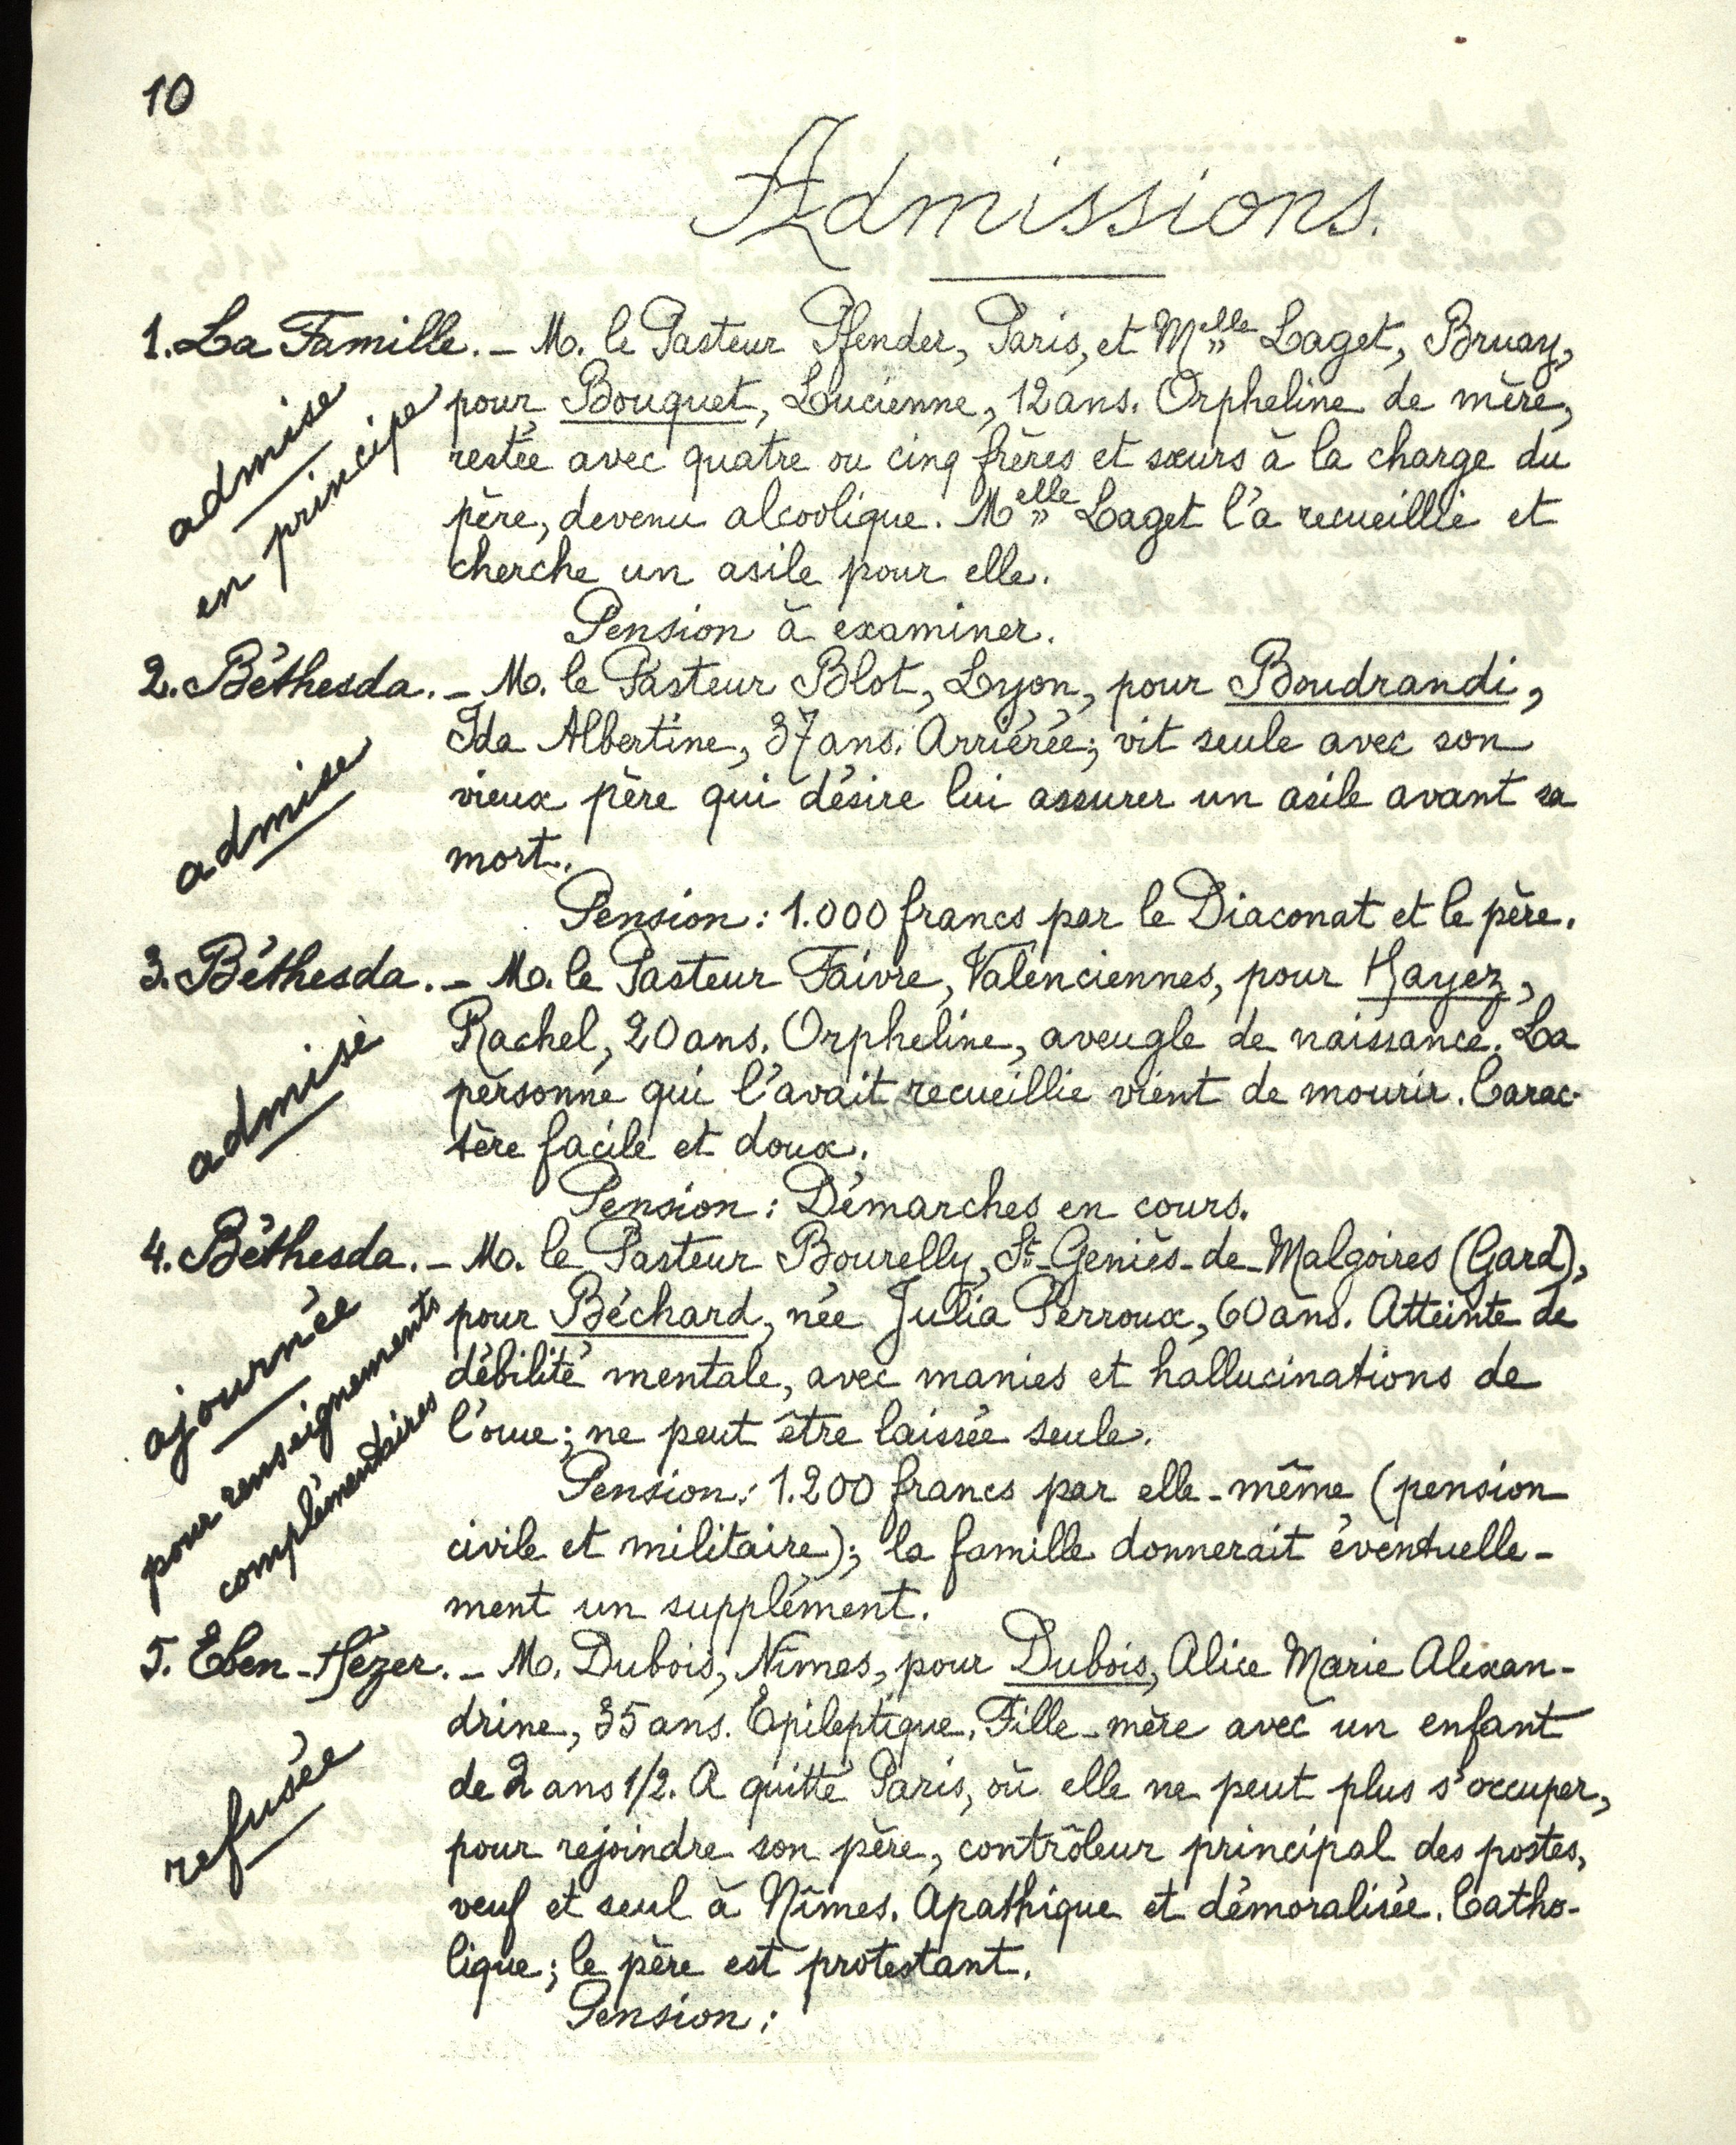 10
Admissions.
1. La Famille. _ M. le Pasteur Pfender, Paris, et Melle Laget, Bruay,
admise
en principe
pour Bouquet, Lucienne, 12 ans. Orpheline de mère,
restée avec quatre ou cinq frères et sœurs à la charge du
père, devenu alcoolique. Melle Laget l'a recueillie et
cherche un asile pour elle.
Pension à examiner.
2. Béthesda. _ M. le Pasteur Blot, Lyon, pour Boudrandi,
admise
Ida Albertine, 37 ans. Arriérée; vit seule avec son
vieux père qui désire lui assurer un asile avant sa
mort.
Pension : 1.000 francs par le Diaconat et le père.
3. Béthesda. _ M. le Pasteur Faivre, Valenciennes, pour Hayez,
admise
Rachel, 20 ans. Orpheline, aveugle de naissance. La
personne qui l'avait recueillie vient de mourir. Carac-
tère facile et doux.
Pension : Démarches en cours.
4. Béthesda. _ M. le Pasteur Bourelly, St-Geniès-de-Malgoires (Gard),
ajournée
pour renseignements
complémentaires
pour Béchard, née Julia Perroux, 60 ans. Atteinte de
débilité mentale, avec manies et hallucinations de
l'ouïe; ne peut être laissée seule.
Pension : 1.200 francs par elle-même (pension
civile et militaire); la famille donnerait éventuelle-
ment un supplément.
5. Eben-Hézer. _ M. Dubois, Nîmes, pour Dubois, Alice Marie Alexan-
refusée
drine, 35 ans. Epileptique. Fille-mère avec un enfant
de 2 ans 1/2. A quitté Paris, où elle ne peut plus s'occuper,
pour rejoindre son père, contrôleur principal des postes,
veuf et seul à Nîmes. Apathique et démoralisée. Catho-
lique; le père est protestant.
Pension :